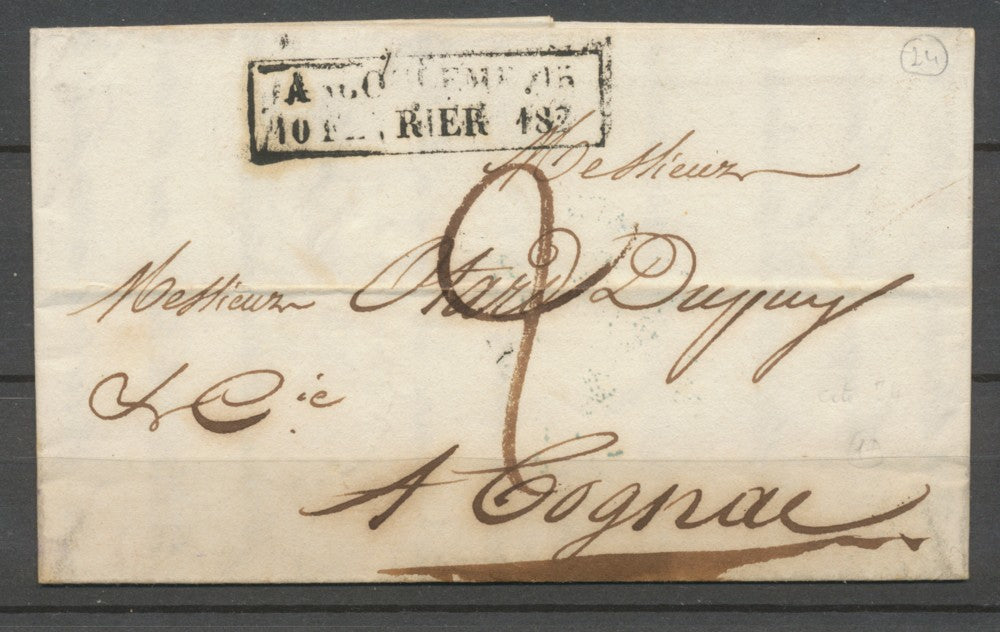 24
ANGOULEME (15
10 FEVRIER 183
Messieurs
Messieurs Otard Dupuy
& C.ie
A Cognac
9